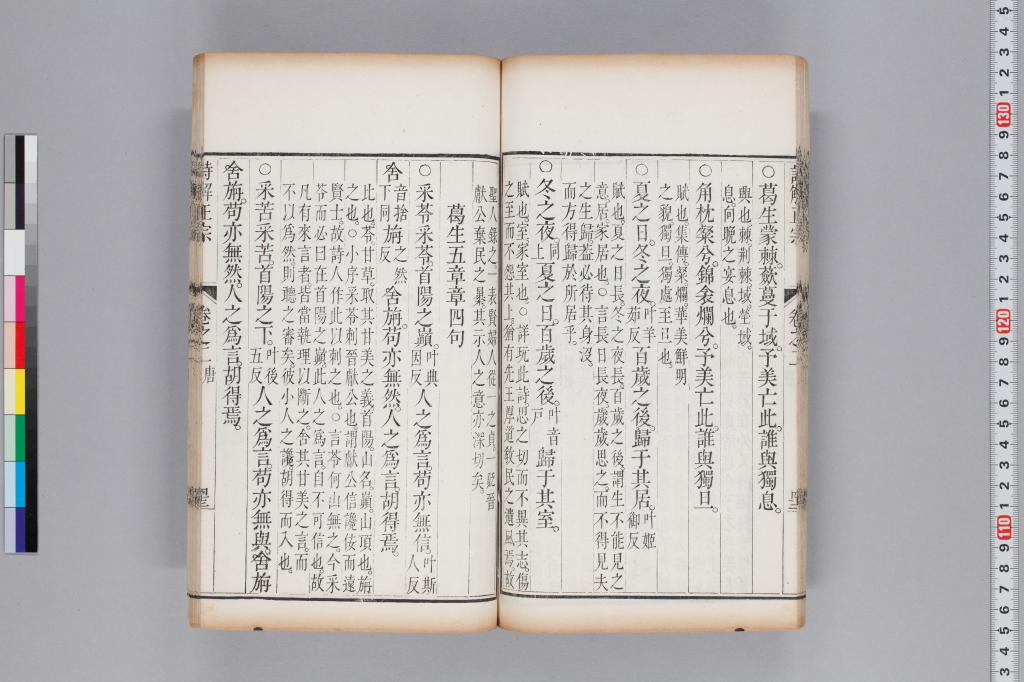 ○葛生蒙棘。蘞蔓于域。予美亡此。誰與獨息。
興也。棘。荆棘。域。塋域。
息。向晚之宴息也。
○角枕粲兮。錦衾爛兮。予美亡此。誰與獨旦。
賦也。集傳。粲爛。華美鮮明
之貌。獨旦。獨處至旦也。
○夏之日。冬之夜。叶羊茹反百歲之後。歸于其居。叶姬御反
賦也。夏之日長。冬之夜長。百歲之後。謂生不能見之
意。居。家居也。○言長日長夜。歲歲思之。而不得見。夫
之生歸。蓋必待其身沒。
而方得歸於所居乎。
○冬之夜。同上夏之日。百歲之後。叶音戶歸于其室。
賦也。室。家室也。○詳玩此詩。思之切而不異其志。傷
之至而不怨其上。猶有先王厚道教民之遺風焉。故
聖人錄之。一表賢婦人從一之貞。一貶晉
獻公棄民之暴。其示人之意亦深切矣。
葛生五章章四句
○采苓采苓。首陽之巔。叶典因反人之爲言。苟亦無信。叶斯人反
舍音捨下同旃之然反舍旃。苟亦無然。人之爲言。胡得焉。
比也。苓。甘草。取其甘美之義。首陽。山名。巔。山頂也。旃。
之也。○小序采苓刺晉獻公也。謂獻公信讒佞而遠
賢士。故詩人作此以刺之也。○言苓何山無之。今采
苓而必曰在首陽之巔。此人之爲言。自不可信也。故
凡有來言者。皆當執理以斷之。舍其甘美之言。而
不以爲然。則聽之審矣。彼小人之讒。胡得而入也。
○采苦采苦。首陽之下。叶後五反人之爲言。苟亦無與。舍旃
舍旃。苟亦無然。人之爲言。胡得焉。
詩解正宗
卷之二
唐